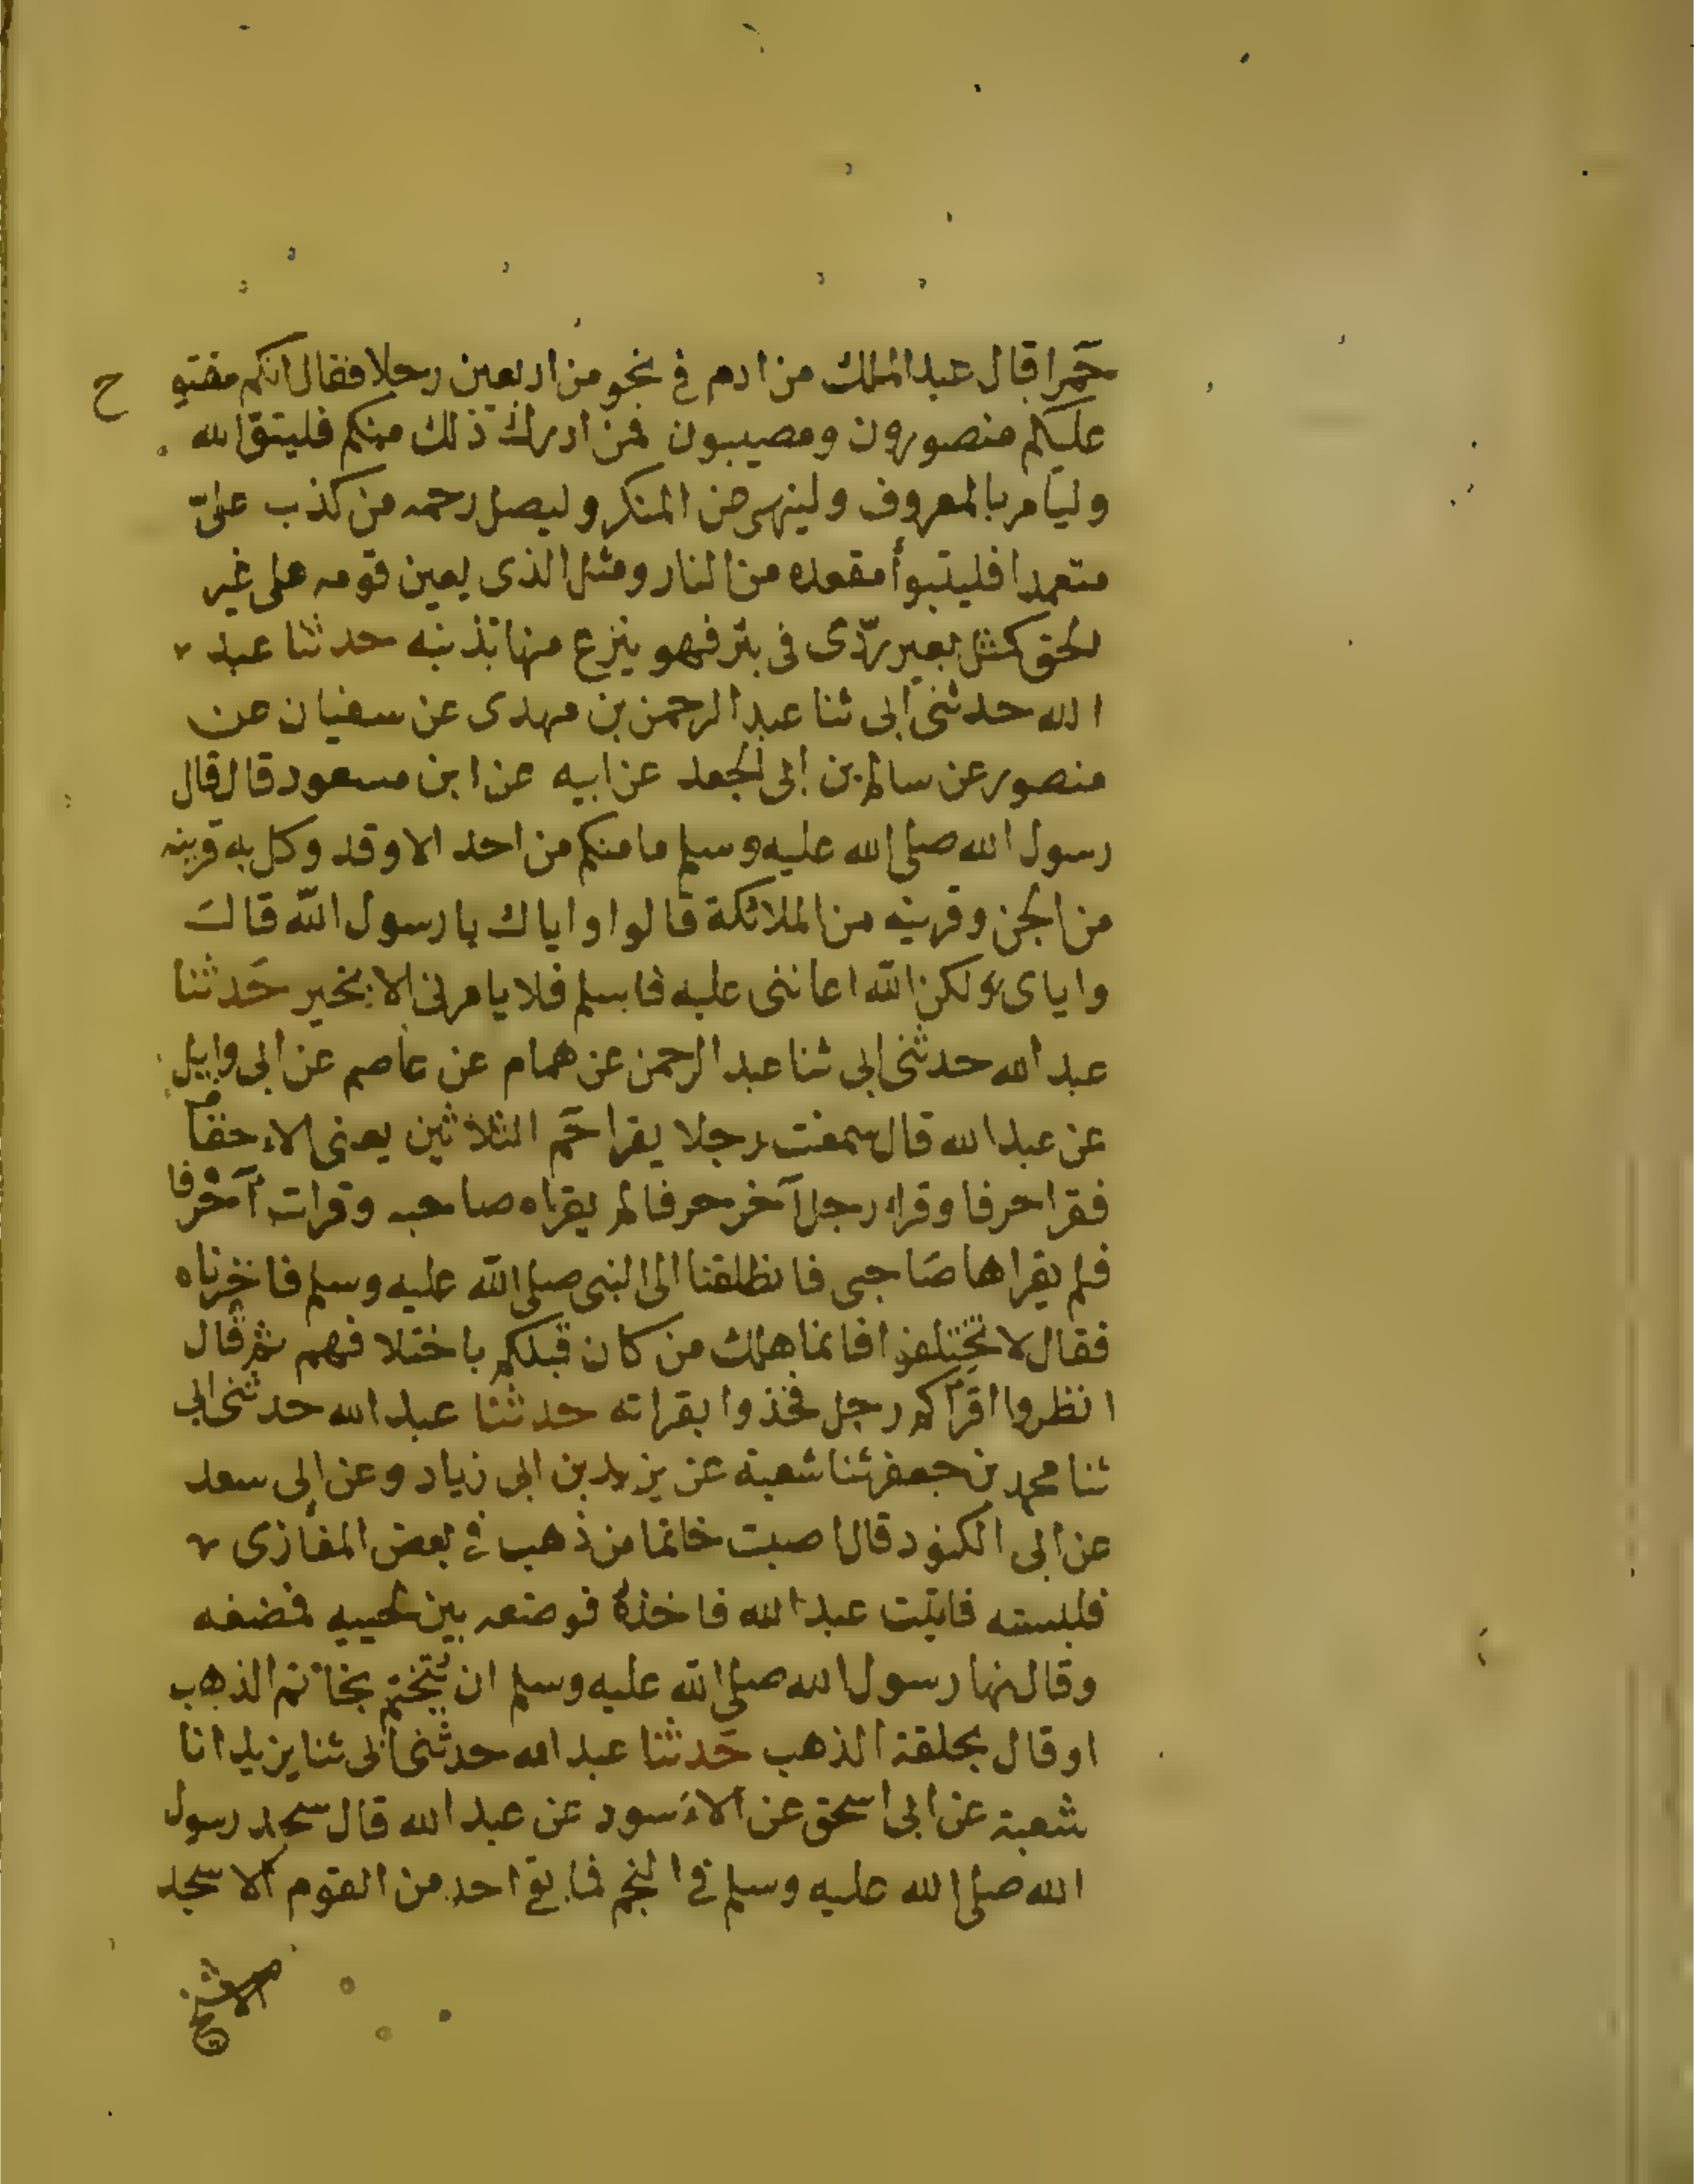 حمرا قال عبد الملك من ادم في نحو من اربعين رجلا فقال انكم مفتو ح
عليكم منصورون ومصيبون فمن ادرك ذلك منكم فليتق الله
وليامر بالمعروف ولينهى عن المنكر وليصل رحمه من كذب علىّ
متعمدا فليتبوأ مقعده من النار ومثل الذى يعين قومه على غير
الحق كمثل بعير ردّى فى بئر فهو ينزع منها بذنبه حدثنا عبد
الله حدثنى ابى ثنا عبد الرحمن بن مهدى عن سفيان عن
منصور عن سالم بن ابى الجعد عن ابيه عن ابن مسعود قال قال
رسول الله صلى الله عليه وسلم ما منكم من احد الا وقد وكل به قرينه
من الجن وقرينه من الملائكة قالوا واياك يا رسول الله قال
واياى ولكن الله اعاننى عليه فاسلم فلا يامرنى الا بخير حدثنا
عبد الله حدثنى ابى ثنا عبد الرحمن عن همام عن عاصم عن ابى وايل
عن عبد الله قال سمعت رجلا يقرا حم الثلاثين يعنى الاحقاف
فقرا حرفا وقرا رجل آخر حرفا لم يقراه صاحبه وقرات احرفا
فلم يقراها صاحبى فانطلقنا الى النبى صلى الله عليه وسلم فاخبرناه
فقال لا تختلفوا فانما هلك من كان قبلكم باختلافهم ثم قال
انظروا اقرأكم رجل فخذوا بقراته حدثنا عبد الله حدثنى ابى
ثنا محمد بن جعفر ثنا شعبة عن يزيد بن ابى زياد وعن ابى سعد
عن ابى الكنود قال اصبت خاتما من ذهب في بعض المغازى
فلبسته فاتيت عبد الله فاخذه فوضعه بين لحييه فمضغه
وقال نها رسول الله صلى الله عليه وسلم ان يتختم بخاتم الذهب
او قال بحلقة الذهب حدثنا عبد الله حدثنى ابى ثنا يزيد انا
شعبة عن ابى اسحق عن الاسود عن عبد الله قال سجد رسول
الله صلى الله عليه وسلم في النجم فما بقي احد من القوم الا سجد